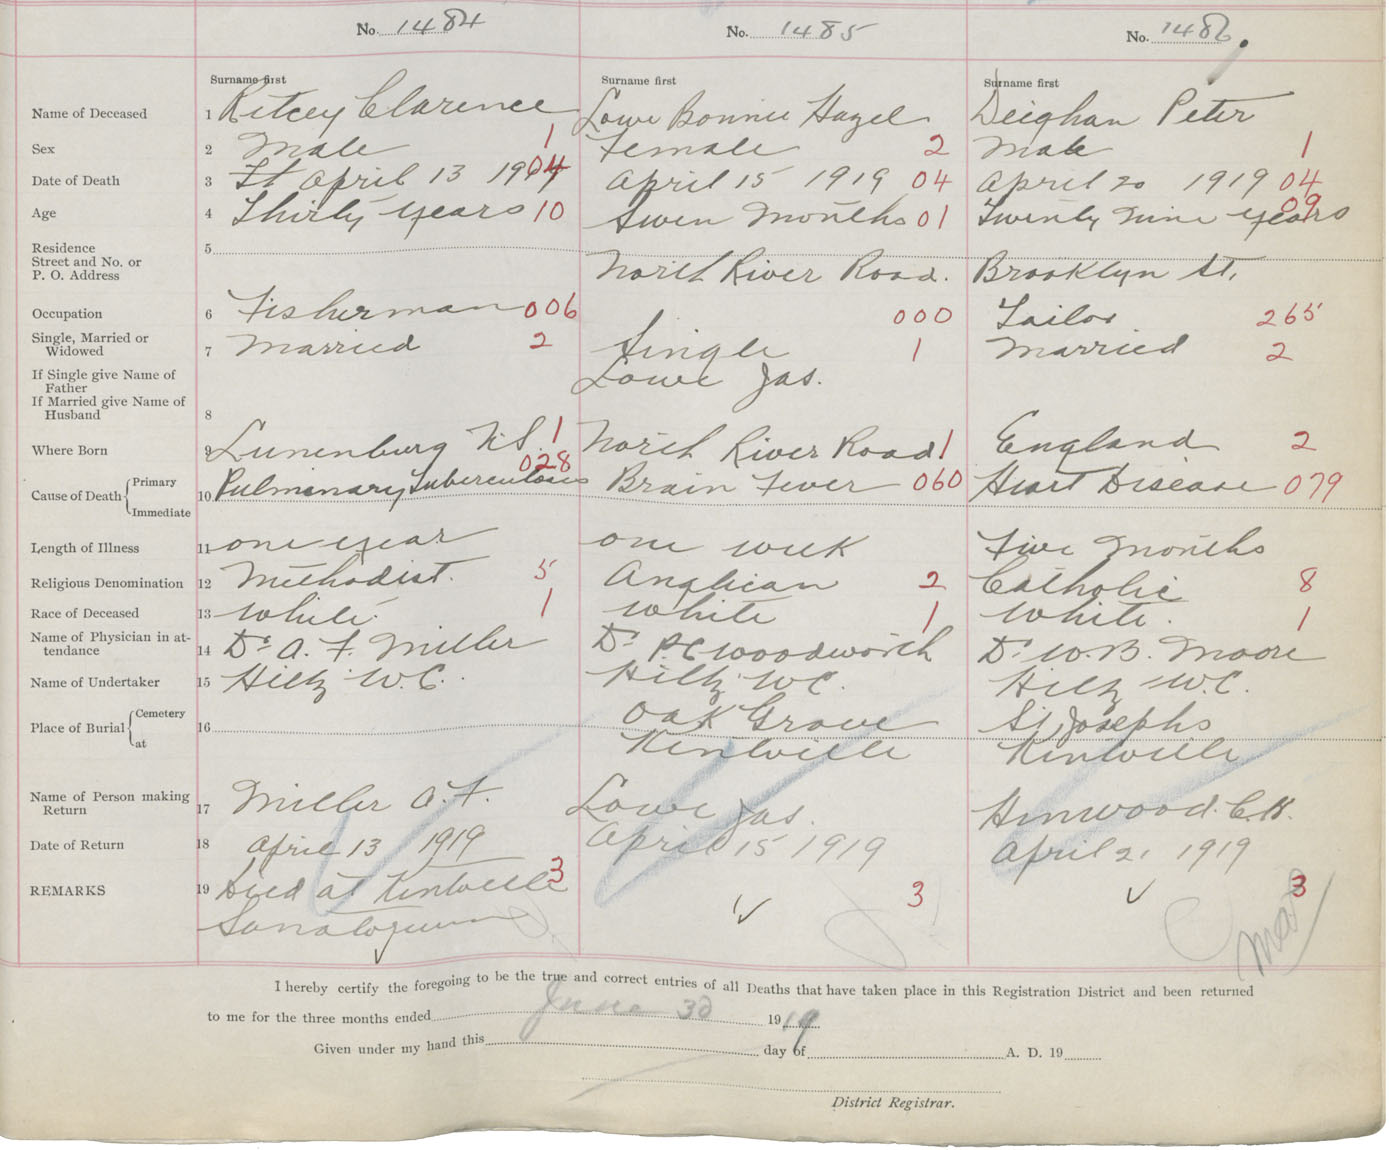 No. 1484 No. 1485 No. 1486
Surname first Surname first Surname first
Name of Deceased 1 Ritcey Clarence Lowe Bonnie Hazel Deighan Peter
Sex 2 Male 1 Female 2 Male 1
Date of Death 3 April 13 1919 04 April 15 1919 04 April 20 1919 04
Age 4 Thirty years 10 Seven Months 01 Twenty nine years 09
Residence 5
Street and No. or
P. O. Address North River Road. Brooklyn St.
Occupation 6 Fisherman 006 000 Tailor 265
Single, Married or
Widowed 7 Married 2 Single 1 Married 2
If Single give Name of
Father Lowe Jas.
If Married give Name of
Husband 8
Where Born 9 Lunenburg N.S. 1 North River Road 1 England 2
Cause of Death { Primary
Immediate 10 Pulmonary Tuberculosis 028 Brain Fever 060 Heart Disease 079
Length of Illness 11 one year one week Five Months
Religious Denomination 12 Methodist. 5 Anglican 2 Catholic 8
Race of Deceased 13 White. 1 White 1 White. 1
Name of Physician in at-
tendance 14 Dr A. F. Miller Dr P.C Woodworth Dr W.B. Moore
Name of Undertaker 15 Hiltz W.C. Hiltz W.C. Hiltz W.C.
Place of Burial { Cemetery 16 Oak Grove St Josephs
at Kentville Kentville
Name of Person making
Return 17 Miller A.F. Lowe Jas. Hinwood. C.H.
Date of Return 18 April 13 1919 April 15 1919 April 21 1919
REMARKS 19 Died at Kentville 3 3 3
Sanatorium
I hereby certify the foregoing to be the true and correct entries of all Deaths that have taken place in this Registration District and been returned
to me for the three months ended June 30 1919
Given under my hand this day of A. D. 19
District Registrar.